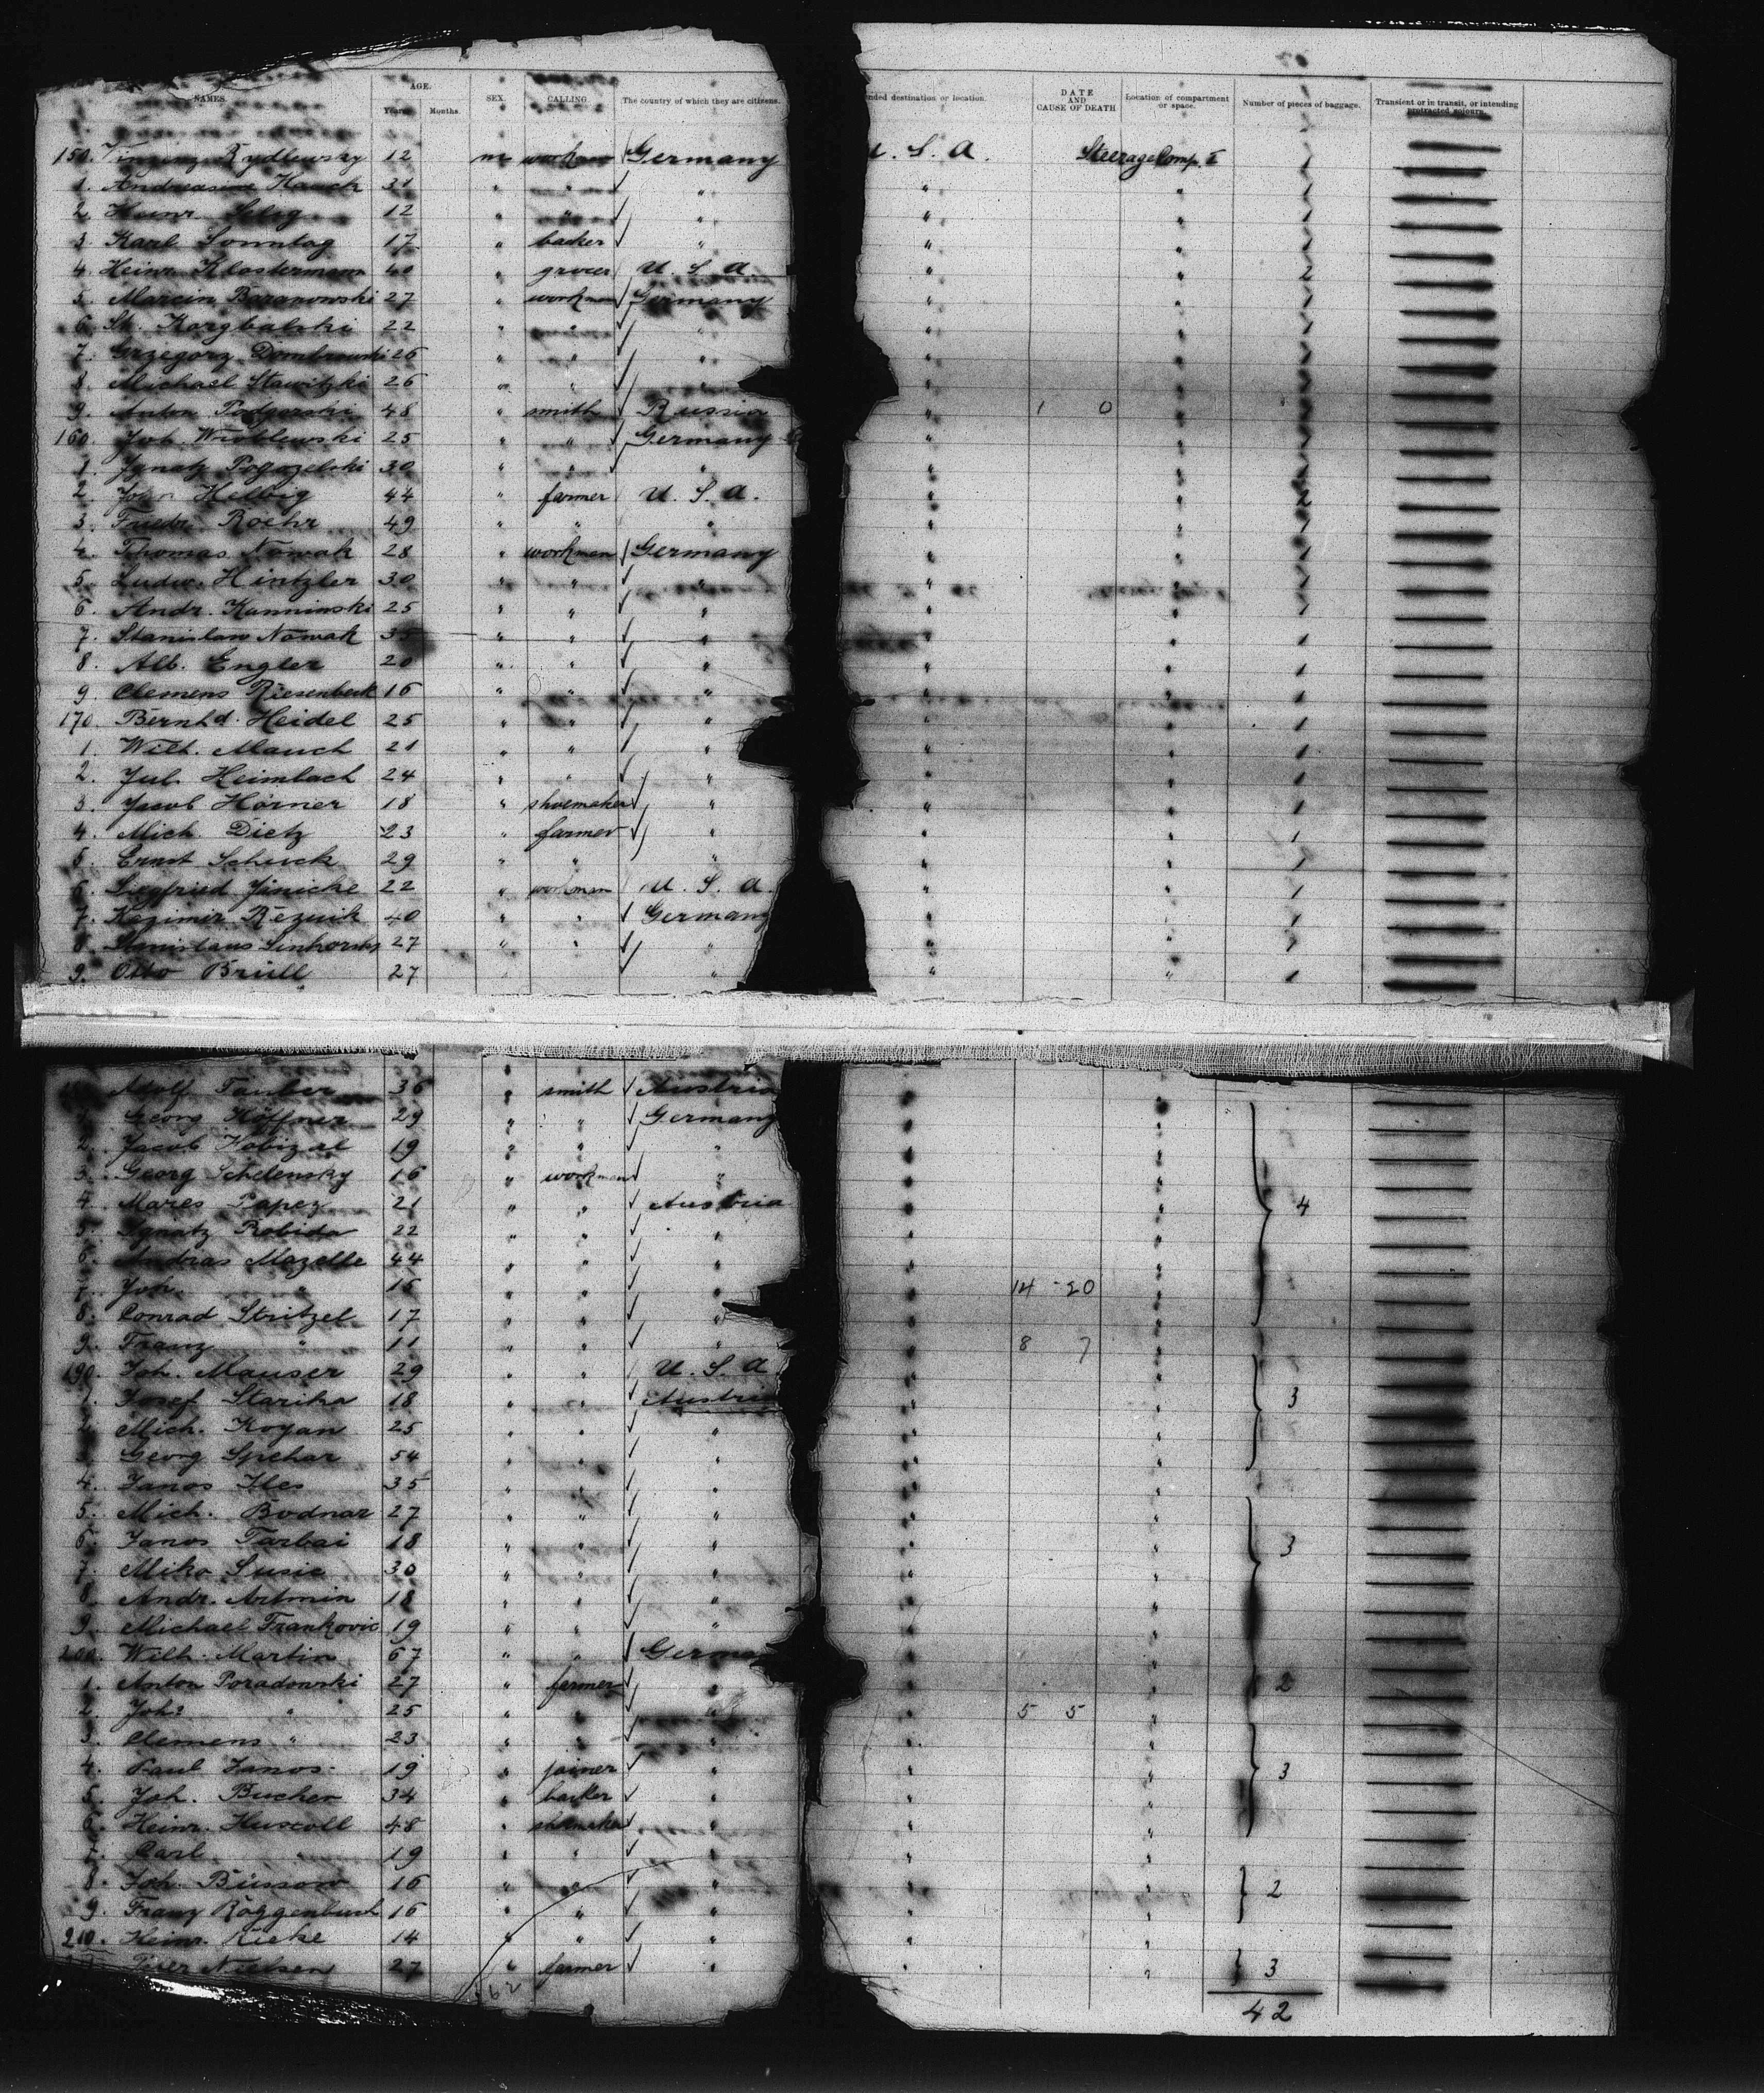 NAMES. AGE. SEX. CALLING The country of which they are citizens. nded destination or location. DATE AND CAUSE OF DEATH Location of compartment or space. Number of pieces of baggage. Transient or in transit, or intending protracted sojourn.
Years. Months.
150. Rydlewsky 12 m Germany U. S. A. Steerage Comp. I 1
1. Hauck 31 " " ✓ " " " 1
2. Heinr. Selig 12 " " ✓ " " " 1
3. Karl Sonntag 17 " backer ✓ " " " 1
4. Heinr. Klostermann 40 " grocer U. S. A. " " 2
5. Marcin Baranowski 27 " workman ✓ Germany " " 1
6. St. 22 " " ✓ " " " 1
7. Grzegorz Dombrowski 26 " " ✓ " " " 1
8. Michael Stawitzki 26 " " ✓ " " 1
9. Anton Podgorski 48 " smith ✓ Russia " 1 0 " 1
160. Joh. Wroblewski 25 " " ✓ Germany " " 1
1. Ignatz Pogozelski 30 " " ✓ " " " 1
2. John Helbig 44 " farmer U. S. A. " " 2
3. Friedr. Roehr 49 " " " " " 1
4. Thomas Nowak 28 " workmen Germany " " 1
5. Ludw. Hintzler 30 " " ✓ " " " 1
6. Andr. Kanninski 25 " " ✓ " " " 1
7. Stanislaw Nowak 35 " " ✓ " " " 1
8. Alb. Engler 20 " " ✓ " " " 1
9. Clemens Riesenbeck 16 " " ✓ " " " 1
170. Bernhd. Heidel 25 " " ✓ " " " 1
1. Wilh. Mauch 21 " " ✓ " " " 1
2. Jul. Heimbach 24 " " ✓ " " " 1
3. Jacob Hörner 18 " shoemaker ✓ " " " 1
4. Mich. Dietz 23 " farmer ✓ " " " 1
5. Ernst Schirck 29 " " " " " 1
6. Siegfried Jänicke 22 " workman U. S. A. " " 1
7. Kazimir Reznik 40 " " ✓ Germany " " 1
8. Stanislaus 27 " " ✓ " " " 1
9. Otto Brüll 27 ✓ " " " 1
Adolf Tauber 36 " smith ✓ Austria " "
Georg Höffner 29 " " ✓ Germany " "
2. Jacob 19 " " ✓ " " "
3. Georg Schelensky 16 " workman ✓ " " "
4. Mares Papez 21 " " ✓ Austria " " 4
5. Ignatz Robida 22 " " ✓ " " "
6. Andras Mazelle 44 " " ✓ " " "
7. Joh. " 16 " " ✓ " " 14 - 20 "
8. Conrad Stritzel 17 " " ✓ " " "
9. Franz " 11 " " ✓ " " 8 7 "
190. Joh. Mauser 29 " " U. S. A " "
1. Josef Stariha 18 " " ✓ Austria " " 3
2. Mich. Koyan 25 " " ✓ " " "
3. Georg Spehar 54 " " ✓ " " "
4. Janos Iles 35 " " ✓ " " "
5. Mich. Bodnar 27 " " ✓ " " "
6. Janos Tarbai 18 " " ✓ " " " 3
7. Miko Susic 30 " " ✓ " " "
8. Andr. Artmin 18 " " ✓ " " "
9. Michael Frankovic 19 " " ✓ " " "
200. Wilh. Martin 67 " " Germa " "
1. Anton Poradowski 27 " farmer ✓ " " " 2
2. Joh: " 25 " " ✓ " " 5 5 "
3. Clemens " 23 " " ✓ " " "
4. Paul Janos 19 " joiner ✓ " " " 3
5. Joh. Bucher 34 " backer ✓ " " "
6. Heinr. Huscoll 48 " shoemaker ✓ " " "
7. Carl " 19 " " ✓ " " "
8. Joh. Büssow 16 " " ✓ " " " 2
9. Franz Roggenbuck 16 " " ✓ " " "
210. Heinr. Rieke 14 " " ✓ " " "
Nielsen 27 " farmer ✓ " " 3
62 42